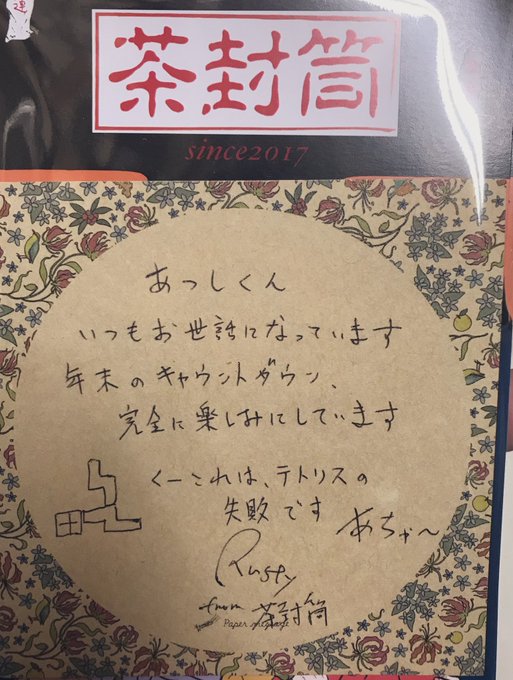 茶封筒
since2017
あっしくん
いつもお世話になっています
年末のキャウントダウン、
完全に楽しみにしています
くーこれは、テトリスの
失敗です
あちゃ〜
Rusty
from 茶封筒
Paper message